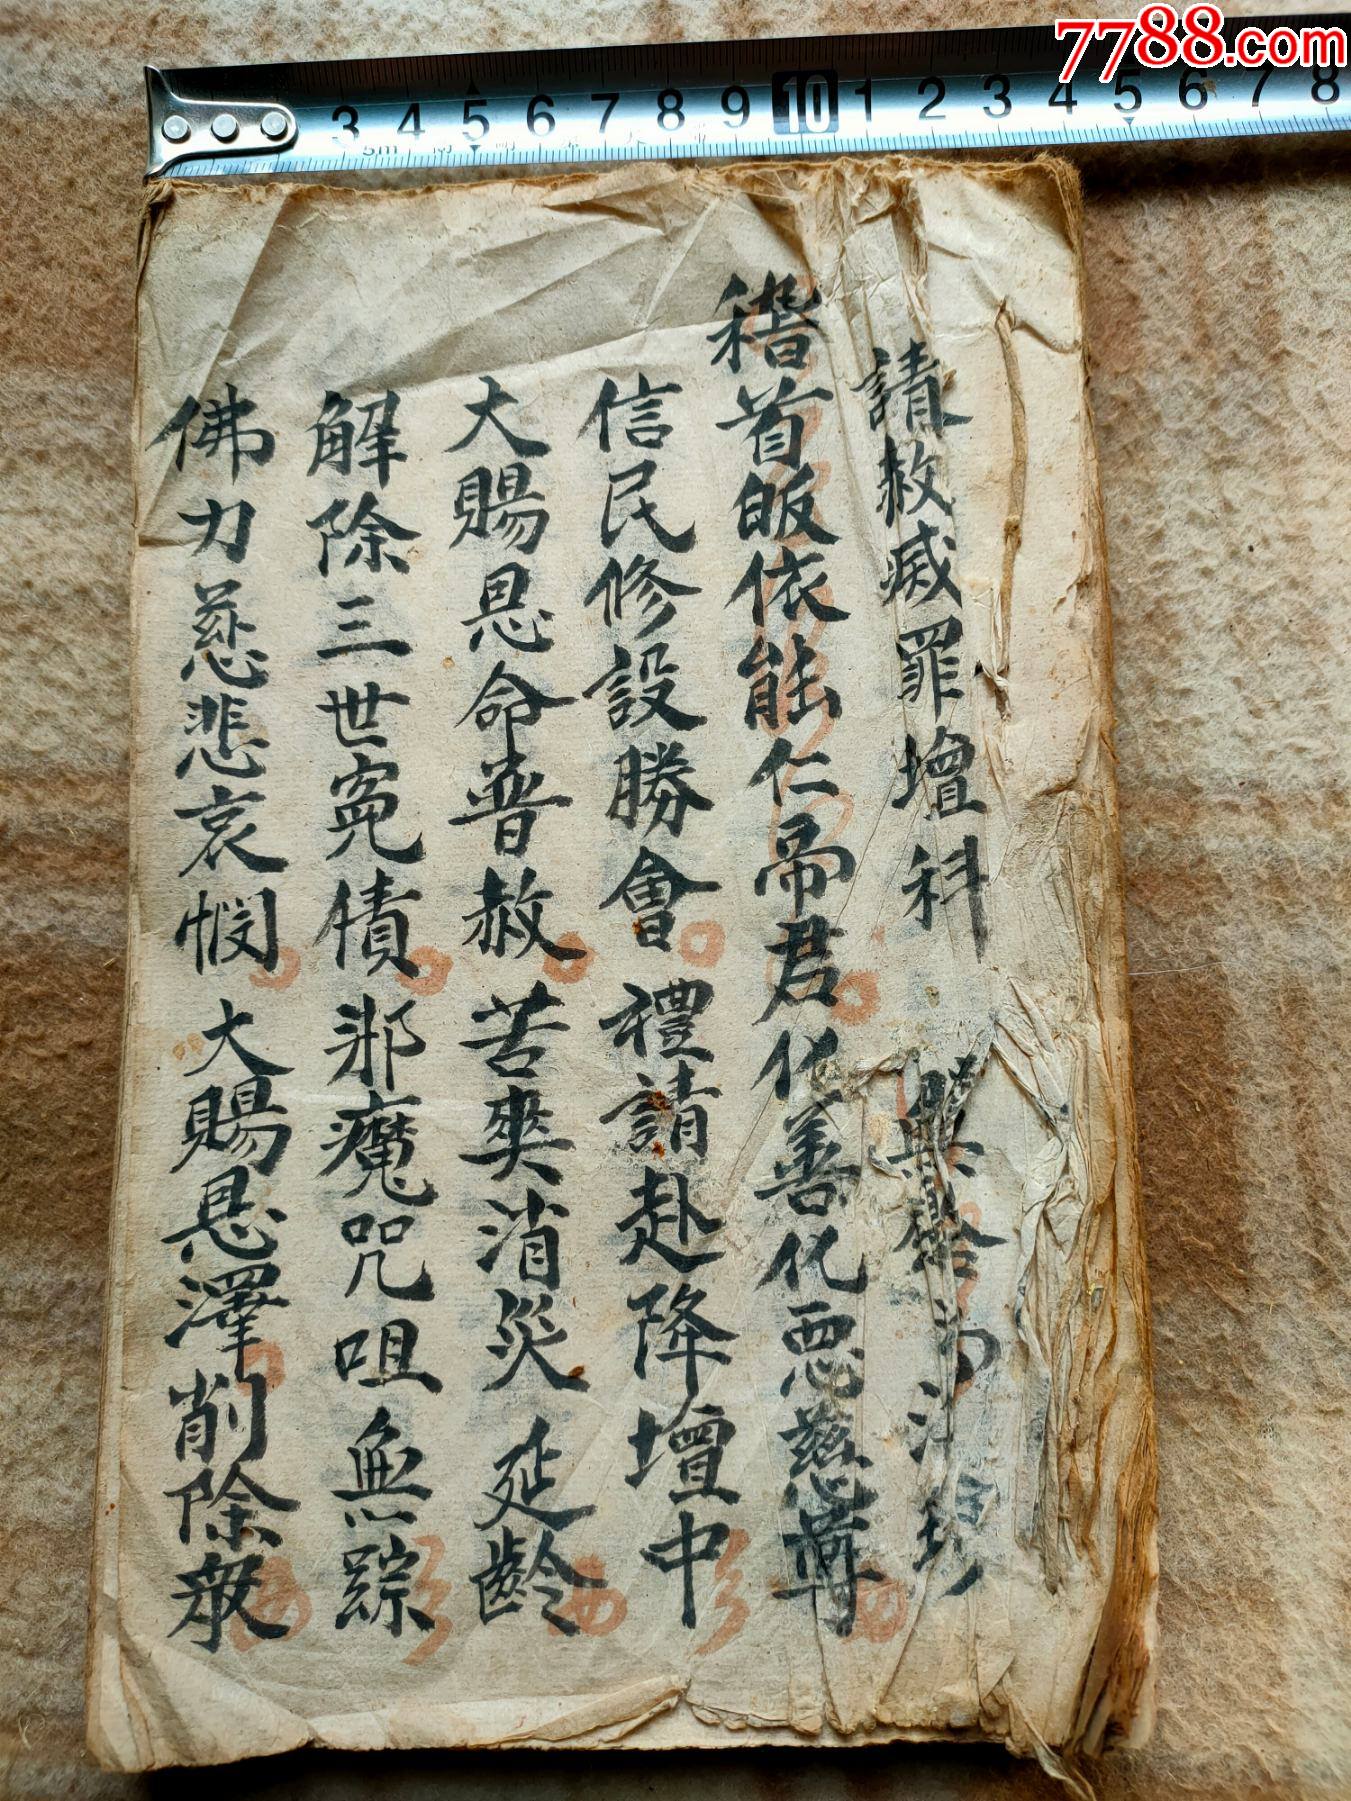 7788.com
3 4 5 6 7 8 9 10 1 2 3 4 5 6 7 8
5m
請赦滅罪壇科
稽首皈依能仁帝君化善化惡慈尊
信民修設勝會禮請赴降壇中
大賜恩命普赦苦爽消災延齡
解除三世寃債邪魔咒咀無踪
佛力慈悲哀憫大賜恩澤削除衆